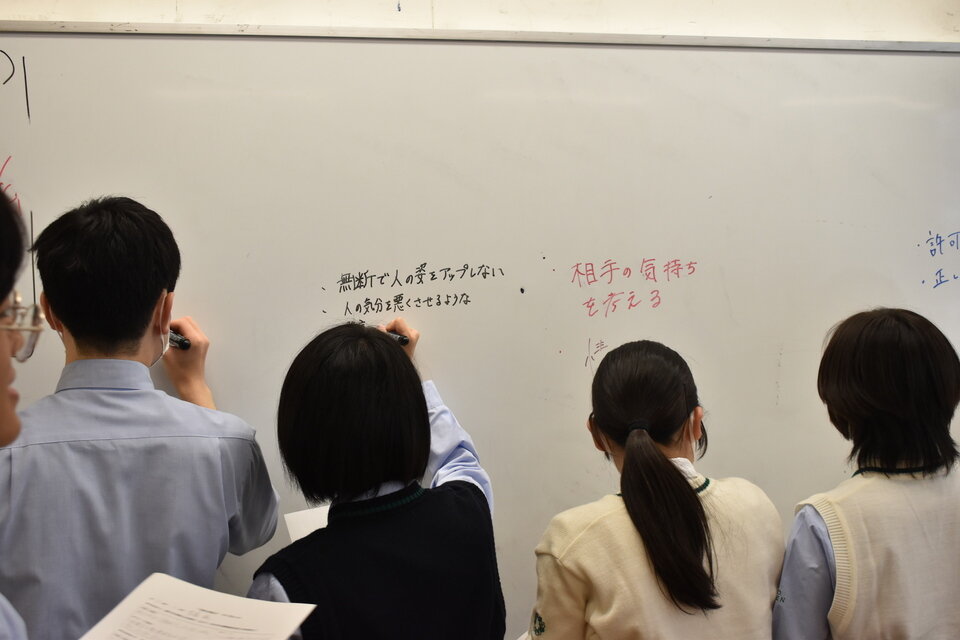 無断で人の姿をアップしない
人の気分を悪くさせるような
相手の気持ち
を考える
許可
正し